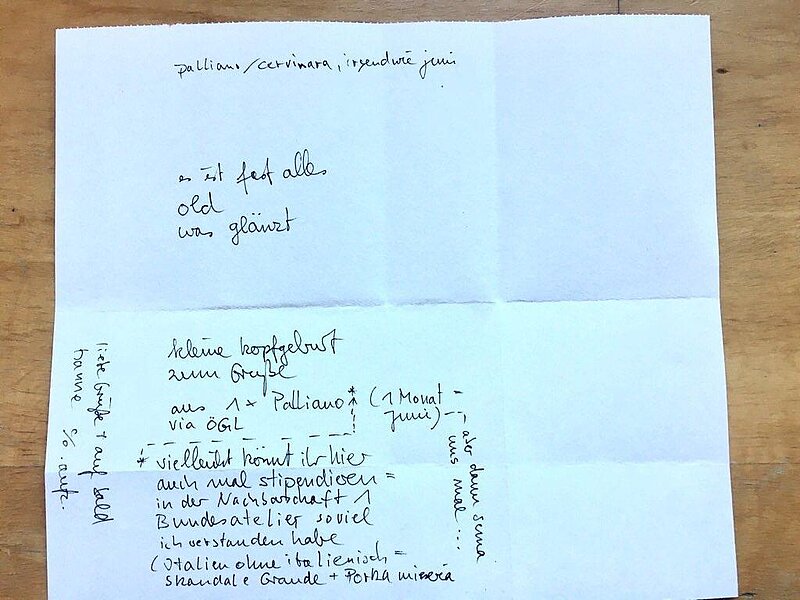 palliano/cervinara, irgendwie juni
es ist fast alles
old
was glänzt
kleine kopfgeburt
zum Grüße
aus 1 x Palliano * (1 Monat =
via ÖGL juni)
* vielleicht könnt ihr hier
auch mal stipendieren =
in der Nachbarschaft 1
Bundesatelier soviel
ich verstanden habe
(Italien ohne italienisch =
skandale Grande + Porka miseria
aber dann
uns mal ....
liebe Grüße + auf bald
hanne c/o